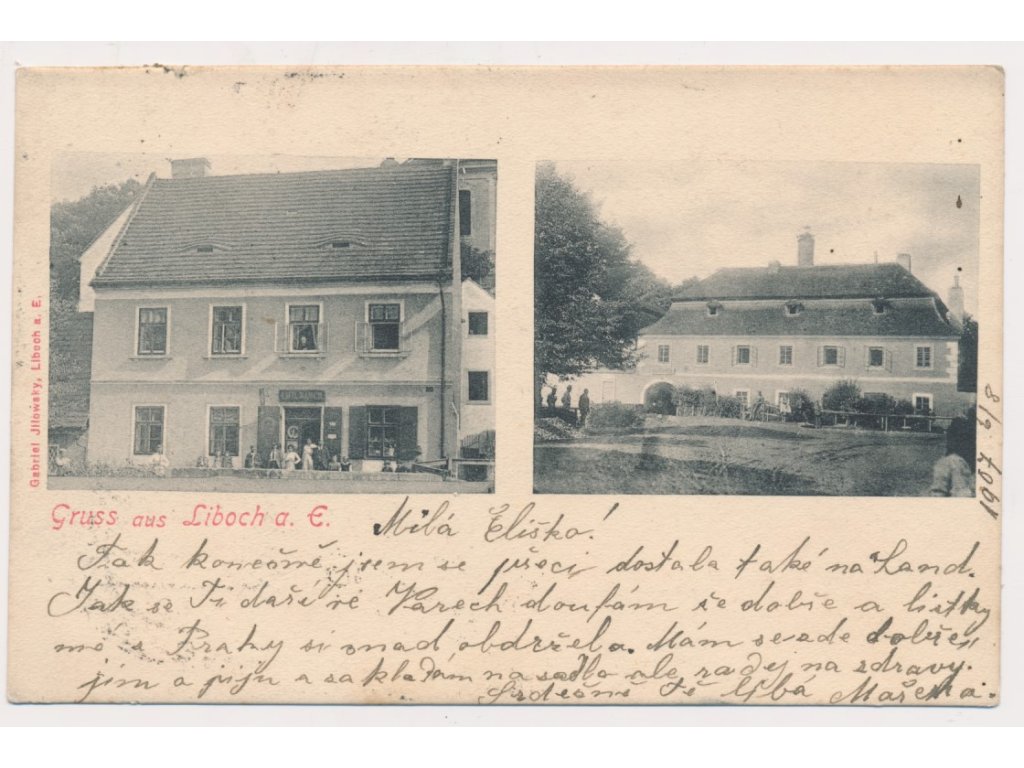 Gabriel Jilowsky, Liboch a. E.
1907 6/8
Gruss aus Liboch a. E.
Milá Eliško!
Tak konečně jsem se přeci dostala také na Land.
Jak se Ti daří ve Varech doufám že dobře a lístky
mé z Prahy si snad obdržela. Mám se zde dobře
jím a piju a zakládám na sádlo ale radej na zdravy.
Srdečně Tě líbá Mařenka.